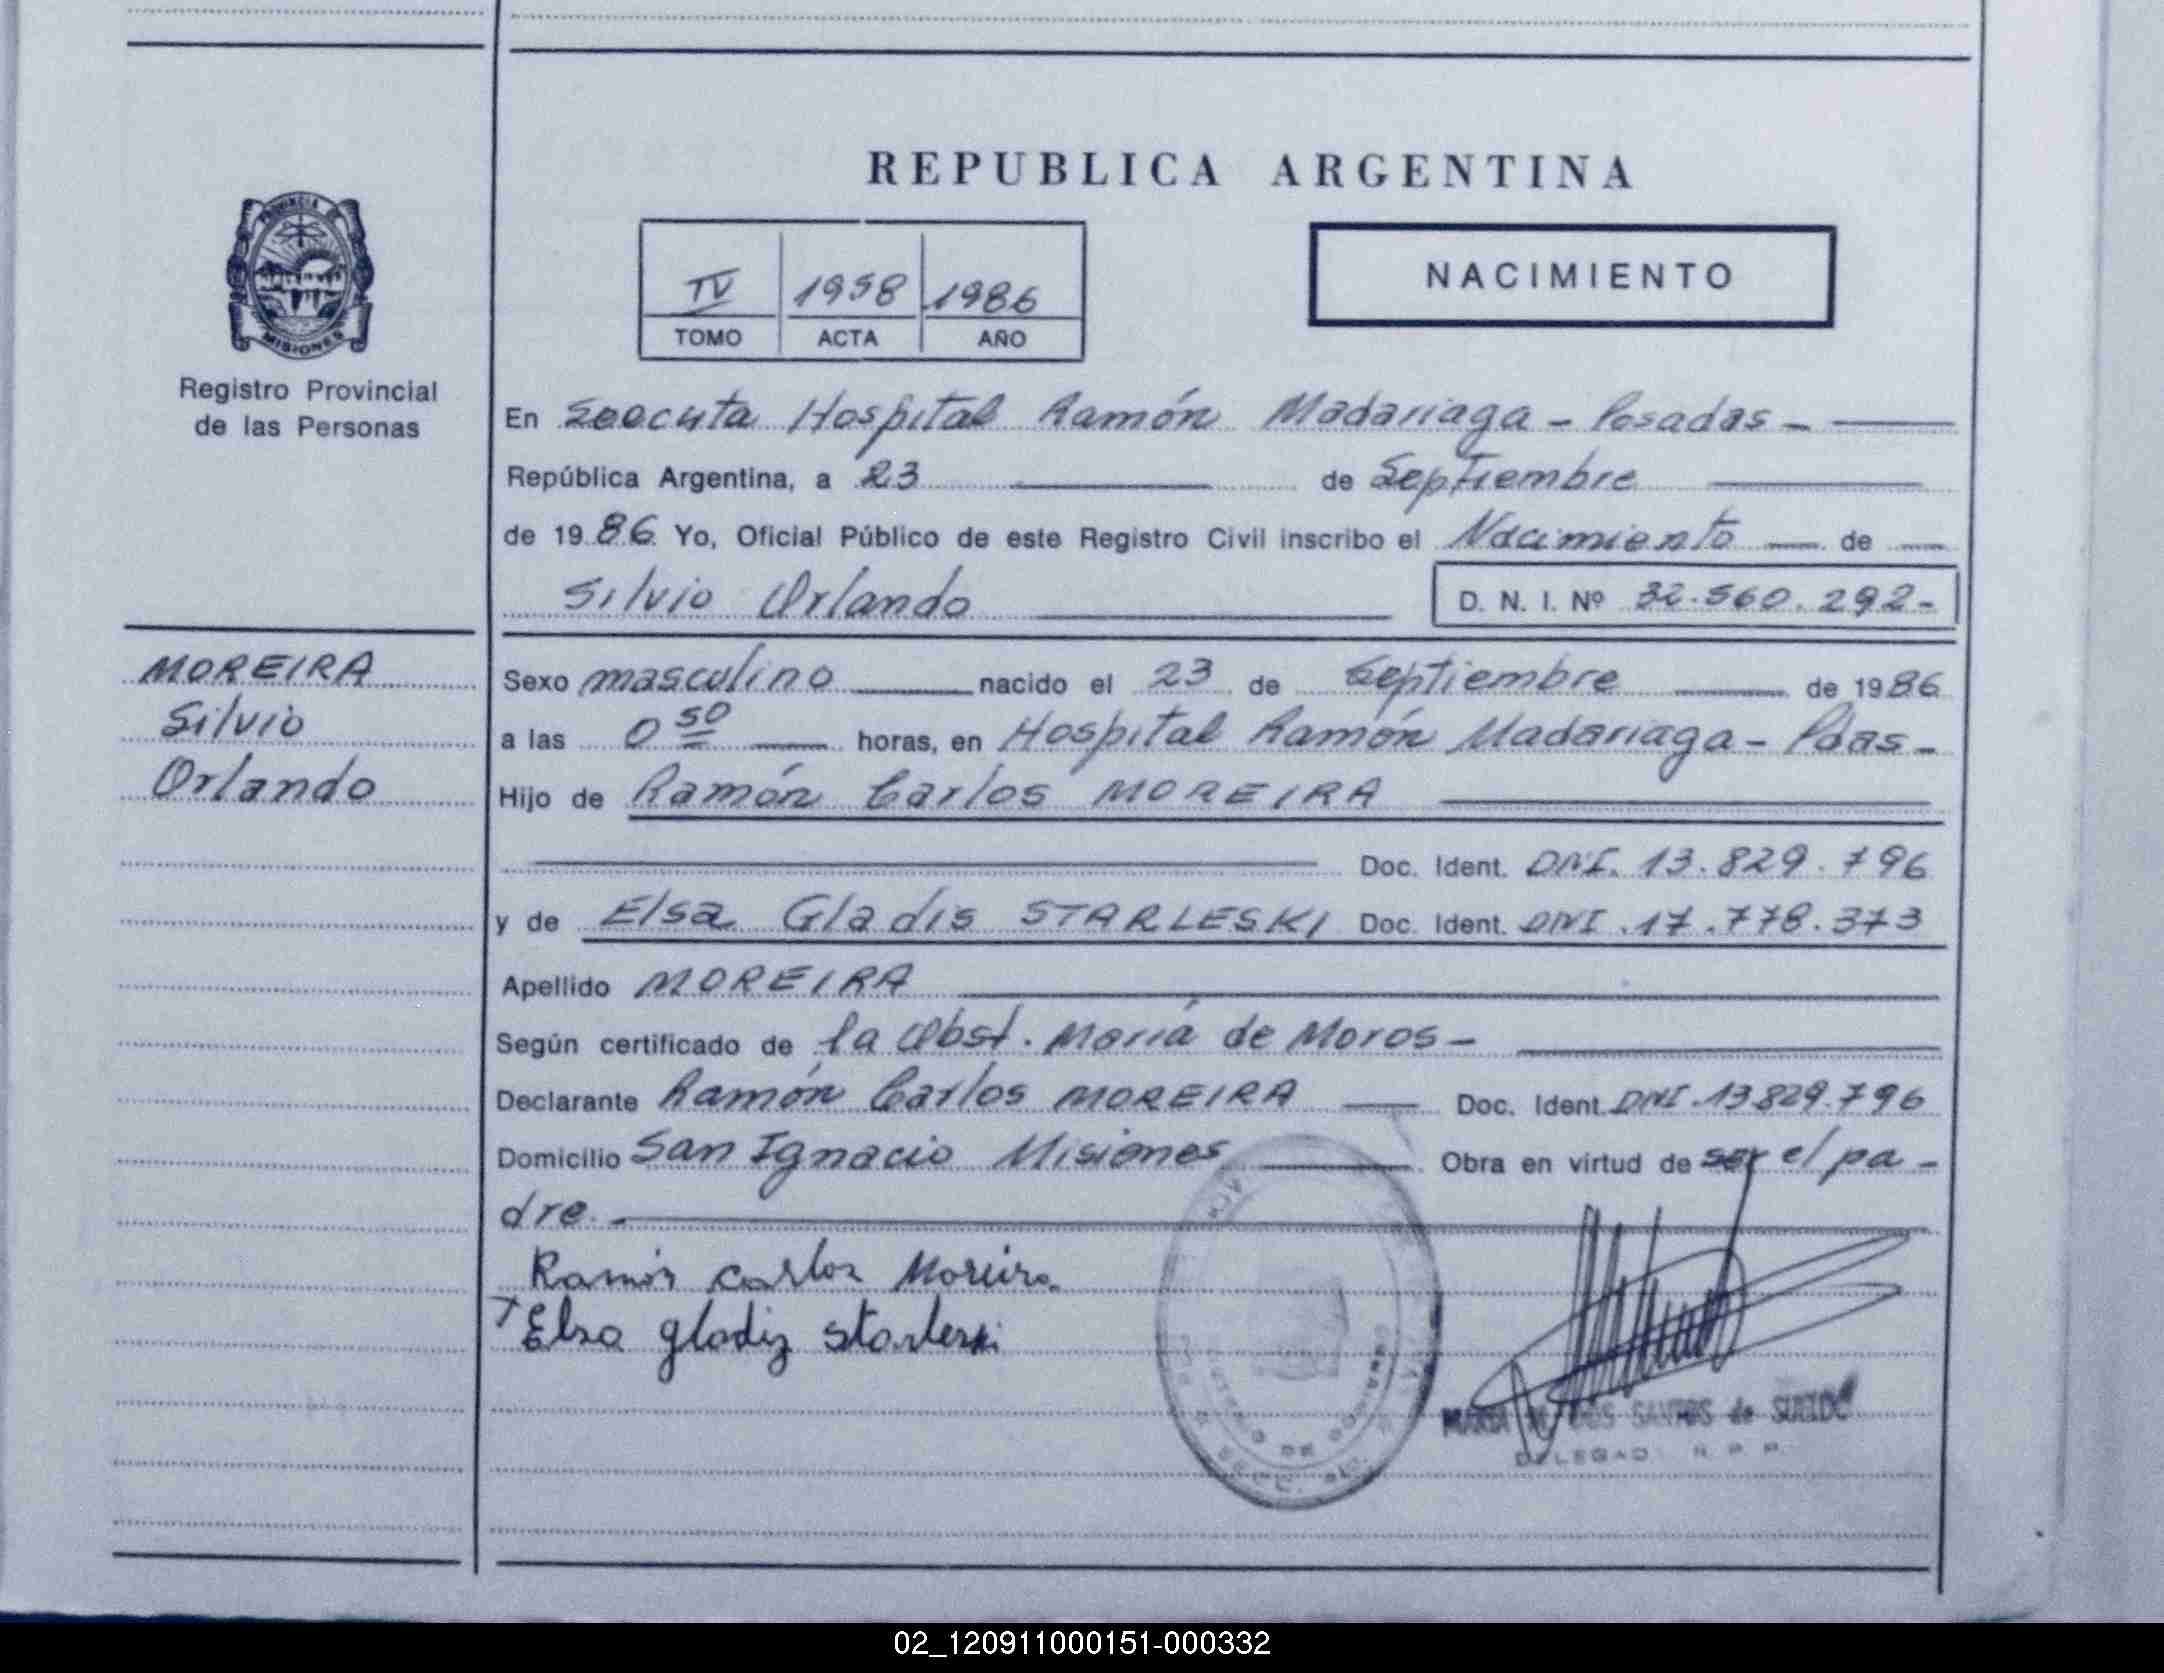 REPUBLICA ARGENTINA
PROVINCIA DE
MISIONES
Registro Provincial
de las Personas
IV 1958 1986
TOMO ACTA AÑO
NACIMIENTO
En Hospital Ramón Madariaga - Posadas -
República Argentina, a 23 de Septiembre
de 1986 Yo, Oficial Público de este Registro Civil inscribo el Nacimiento de
Silvio Orlando D. N. I. Nº 32.560.292-
MOREIRA
Silvio
Orlando
Sexo masculino nacido el 23 de Septiembre de 1986
a las 0 50 horas, en Hospital Ramón Madariaga - Pdas -
Hijo de Ramón Carlos MOREIRA
Doc. Ident. DNI. 13.829.796
y de Elsa Gladis STARLESKI Doc. Ident. DNI. 17.778.373
Apellido MOREIRA
Según certificado de la Obst. María de Moros -
Declarante Ramón Carlos MOREIRA Doc. Ident. DNI. 13829.796
Domicilio San Ignacio Misiones Obra en virtud de ser el pa-
dre.
Ramón Carlos Moreira
Elsa gladiz starleski
MARIA DOS SANTOS de
DELEGAD R. P. P.
02_120911000151-000332